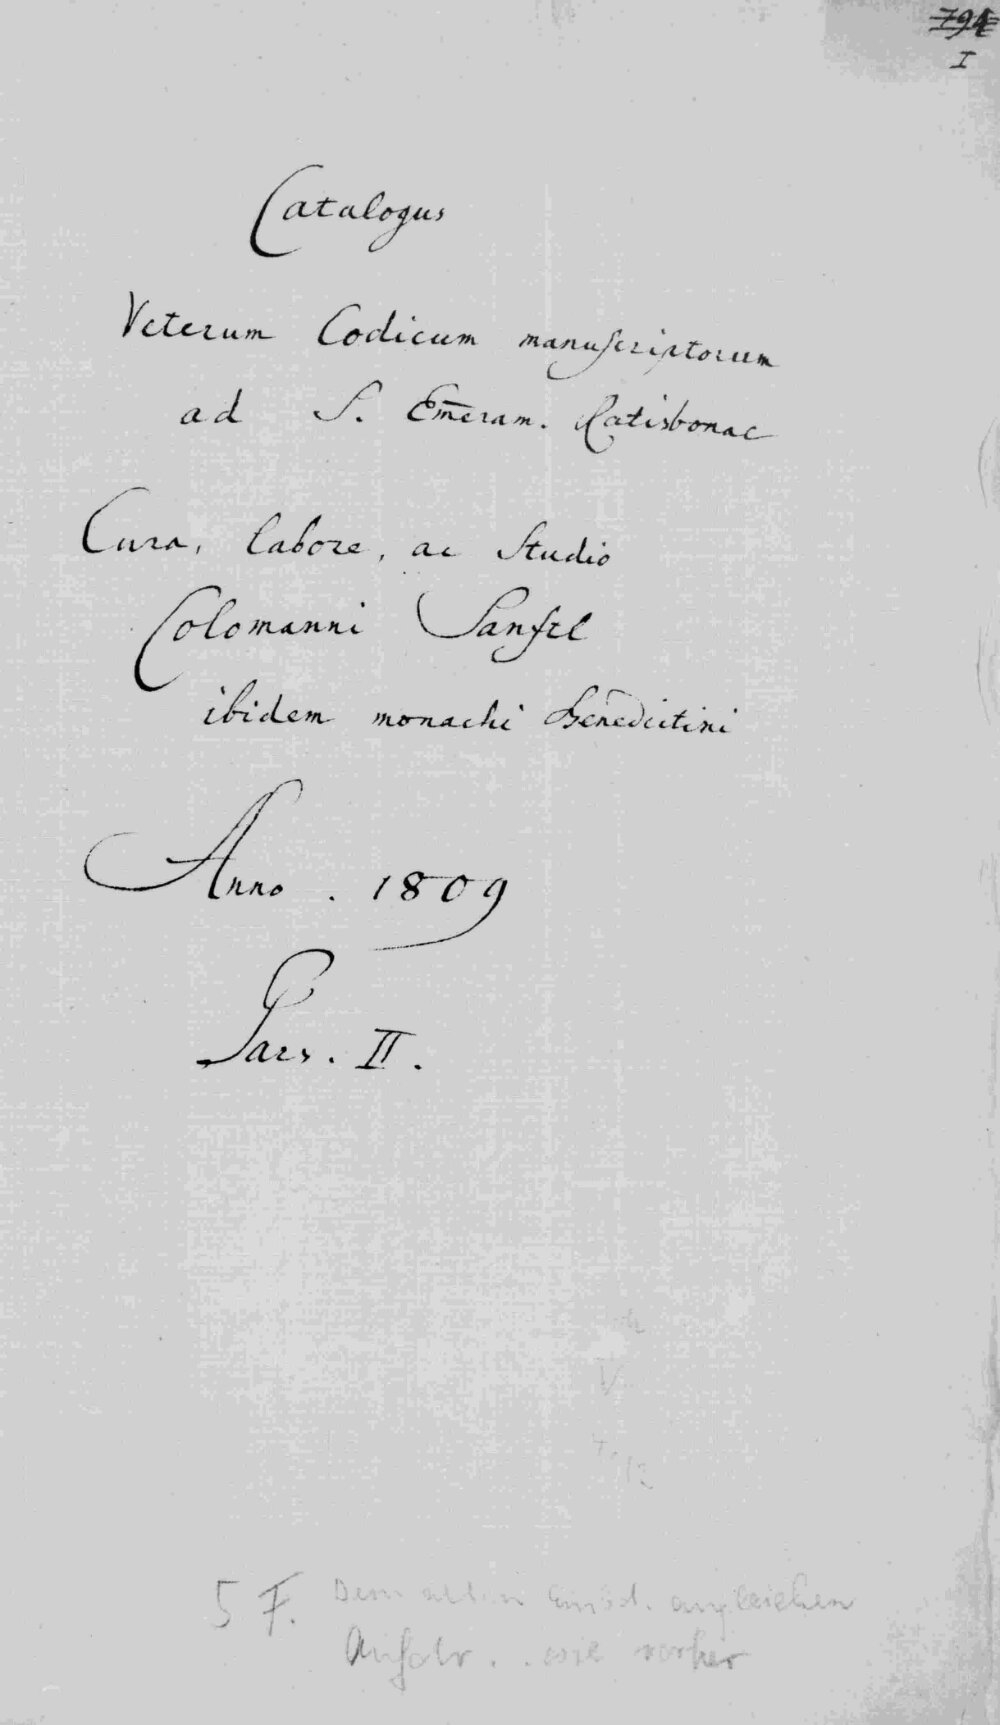 794
I
Catalogus
Veterum Codicum manuscriptorum
ad S. Em̄eram. Ratisbonae
Cura, labore, ac Studio
Colomanni Sanftl
ibidem monachi Benedictini
Anno. 1809
Pars. II.
5 F. Dem alten angleichen
wie vorher